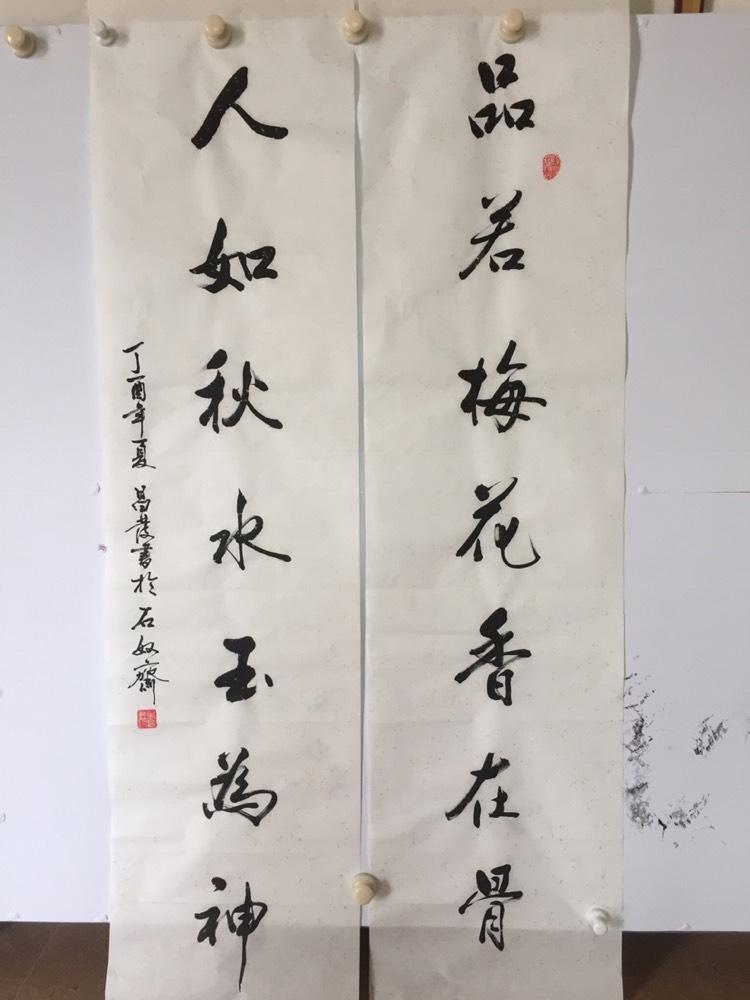 品若梅花香在骨
人如秋水玉為神
丁酉年夏 昌發書於石奴齋